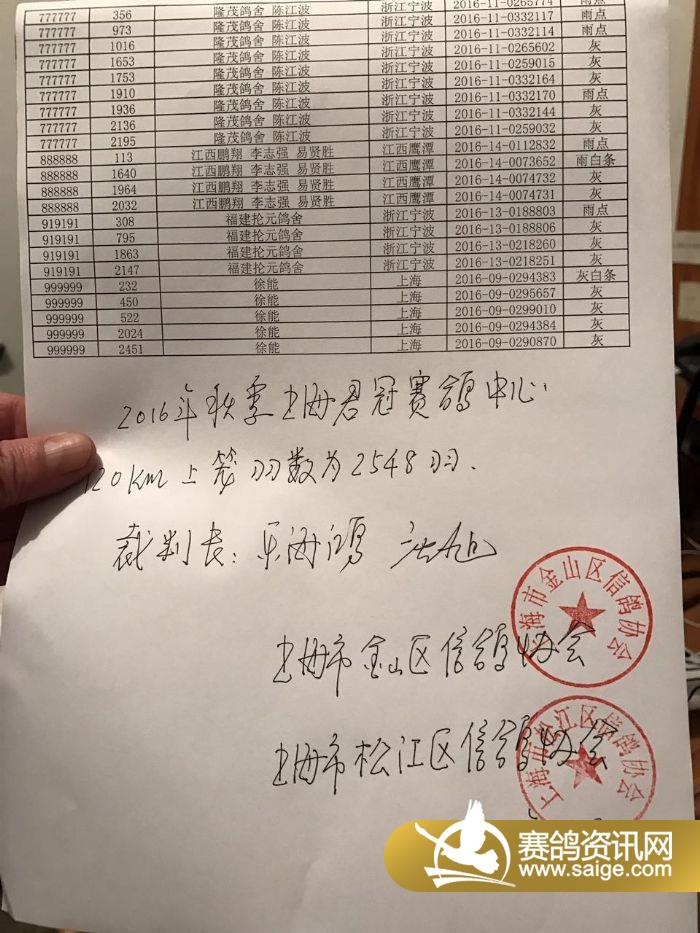 777777 356 隆茂鸽舍 陈江波 浙江宁波 2016-11-0265774 雨点
777777 973 隆茂鸽舍 陈江波 浙江宁波 2016-11-0332117 雨点
777777 1016 隆茂鸽舍 陈江波 浙江宁波 2016-11-0332114 雨点
777777 1653 隆茂鸽舍 陈江波 浙江宁波 2016-11-0265602 灰
777777 1753 隆茂鸽舍 陈江波 浙江宁波 2016-11-0259015 灰
777777 1910 隆茂鸽舍 陈江波 浙江宁波 2016-11-0332164 灰
777777 1936 隆茂鸽舍 陈江波 浙江宁波 2016-11-0332170 雨点
777777 2136 隆茂鸽舍 陈江波 浙江宁波 2016-11-0332144 灰
777777 2195 隆茂鸽舍 陈江波 浙江宁波 2016-11-0259032 灰
888888 113 江西鹏翔 李志强 易贤胜 江西鹰潭 2016-14-0112832 雨点
888888 1640 江西鹏翔 李志强 易贤胜 江西鹰潭 2016-14-0073652 雨白条
888888 1964 江西鹏翔 李志强 易贤胜 江西鹰潭 2016-14-0074732 灰
888888 2032 江西鹏翔 李志强 易贤胜 江西鹰潭 2016-14-0074731 灰
919191 308 福建抡元鸽舍 浙江宁波 2016-13-0188803 雨点
919191 795 福建抡元鸽舍 浙江宁波 2016-13-0188806 灰
919191 1863 福建抡元鸽舍 浙江宁波 2016-13-0218260 灰
919191 2147 福建抡元鸽舍 浙江宁波 2016-13-0218251 灰
999999 232 徐能 上海 2016-09-0294383 灰白条
999999 450 徐能 上海 2016-09-0295657 灰
999999 522 徐能 上海 2016-09-0299010 灰
999999 2024 徐能 上海 2016-09-0294384 灰
999999 2451 徐能 上海 2016-09-0290870 灰
2016年秋季上海君冠赛鸽中心
120Km上笼羽数为2548羽.
裁判长:
上海市金山区信鸽协会
上海市金山区信鸽协会
上海市松江区信鸽协会
上海市松江区信鸽协会
赛鸽资讯网
www.saige.com